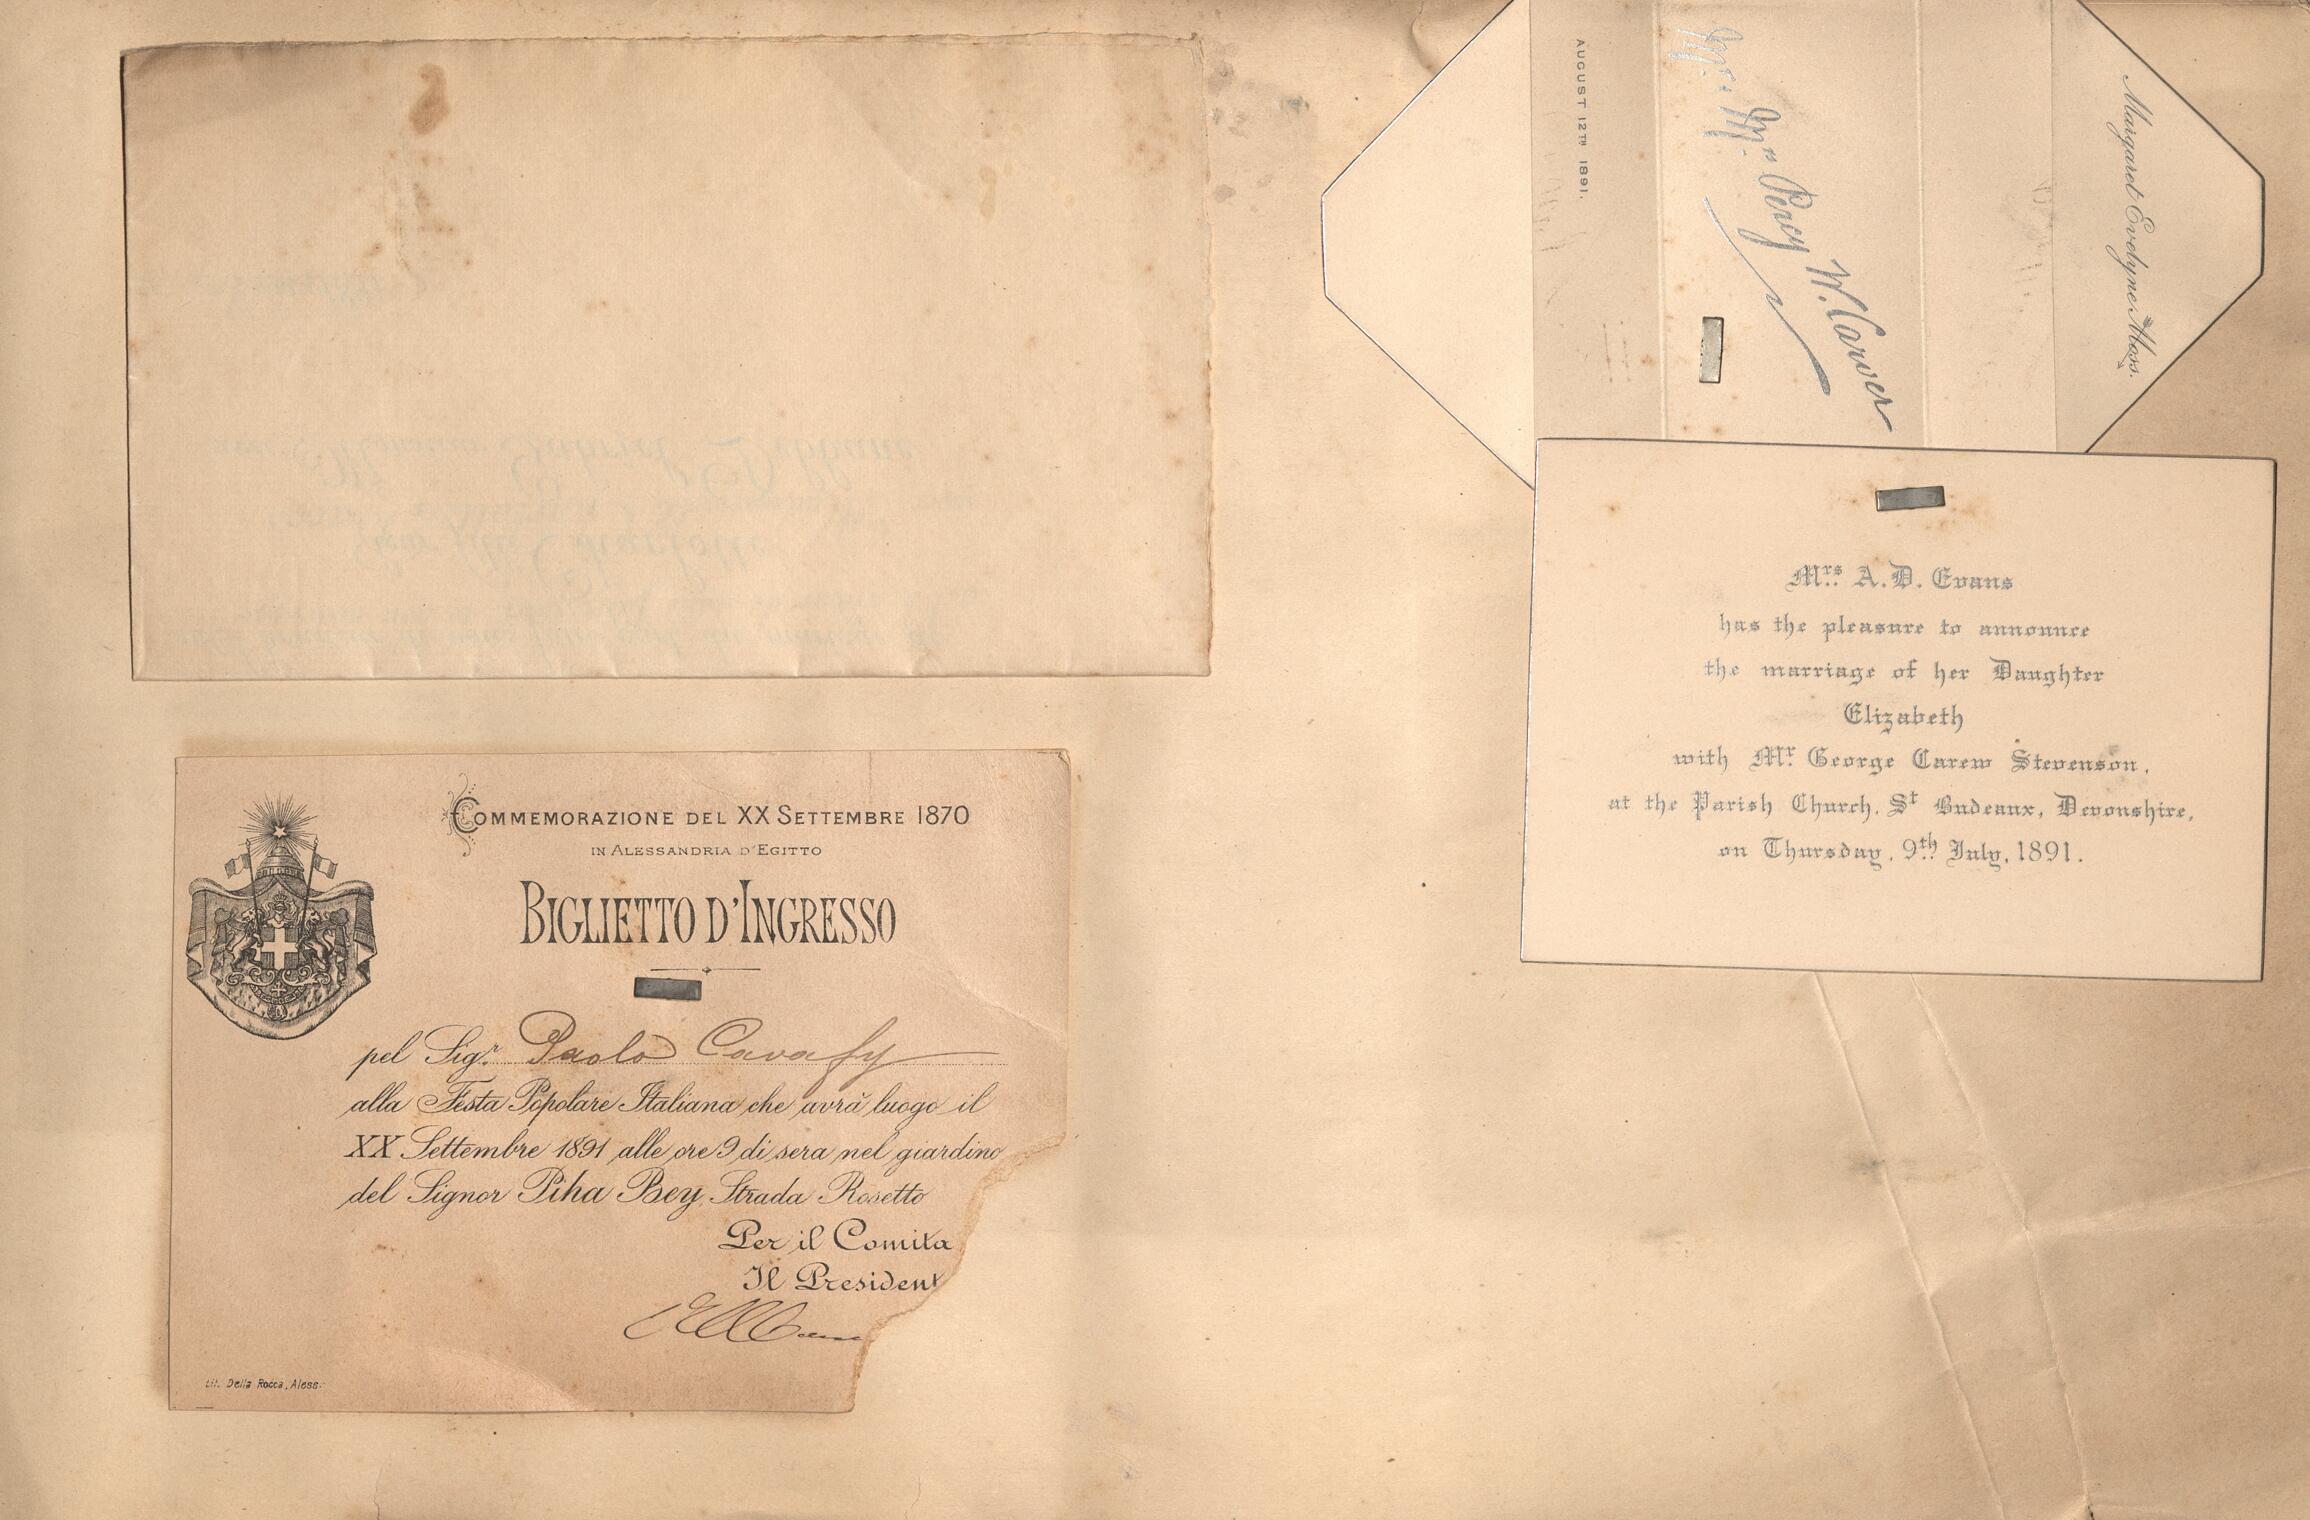 COMMEMORAZIONE DEL XX SETTEMBRE 1870
IN ALESSANDRIA D'EGITTO
BIGLIETTO D'INGRESSO
pel Sigr. Paolo Cavafy
alla Festa Popolare Italiana che avrà luogo il
XX Settembre 1891 alle ore 9 di sera nel giardino
del Signor Piha Bey, Strada Rosetto
Per il Comita
Il President
Lit. Della Rocca, Aless.
AUGUST 12TH 1891.
Mr. Mrs Percy W. Carver
Margaret Evelyne Moss.
Mrs. A.D. Evans
has the pleasure to announce
the marriage of her Daughter
Elizabeth
with Mr. George Carew Stevenson,
at the Parish Church, St Budeaux, Devonshire,
on Thursday, 9th July, 1891.